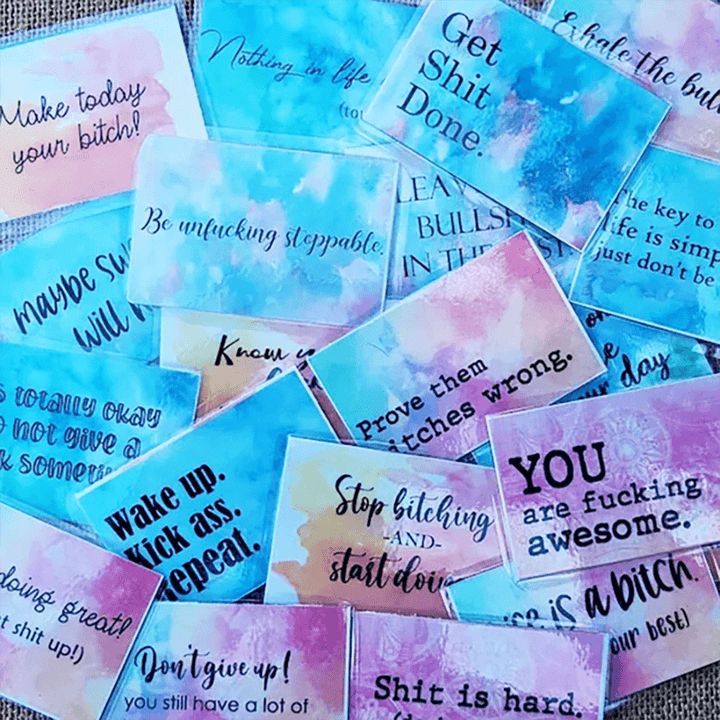 Make today
your bitch!
Nothing in life
(tou
Get
Shit
Done.
Exhale the bull
Be unfucking stoppable.
LEAV
BULLSH
IN THE
The key to
life is simp
just don't be
maybe sw
will h
Know y
Prove them
itches wrong.
day
s totally okay
o not give a
k someti
Wake up.
Kick ass.
Repeat.
Stop bitching
-AND-
start doin
YOU
are fucking
awesome.
doing great!
t shit up!)
is a bitch.
our best)
Don't give up!
you still have a lot of
Shit is hard.